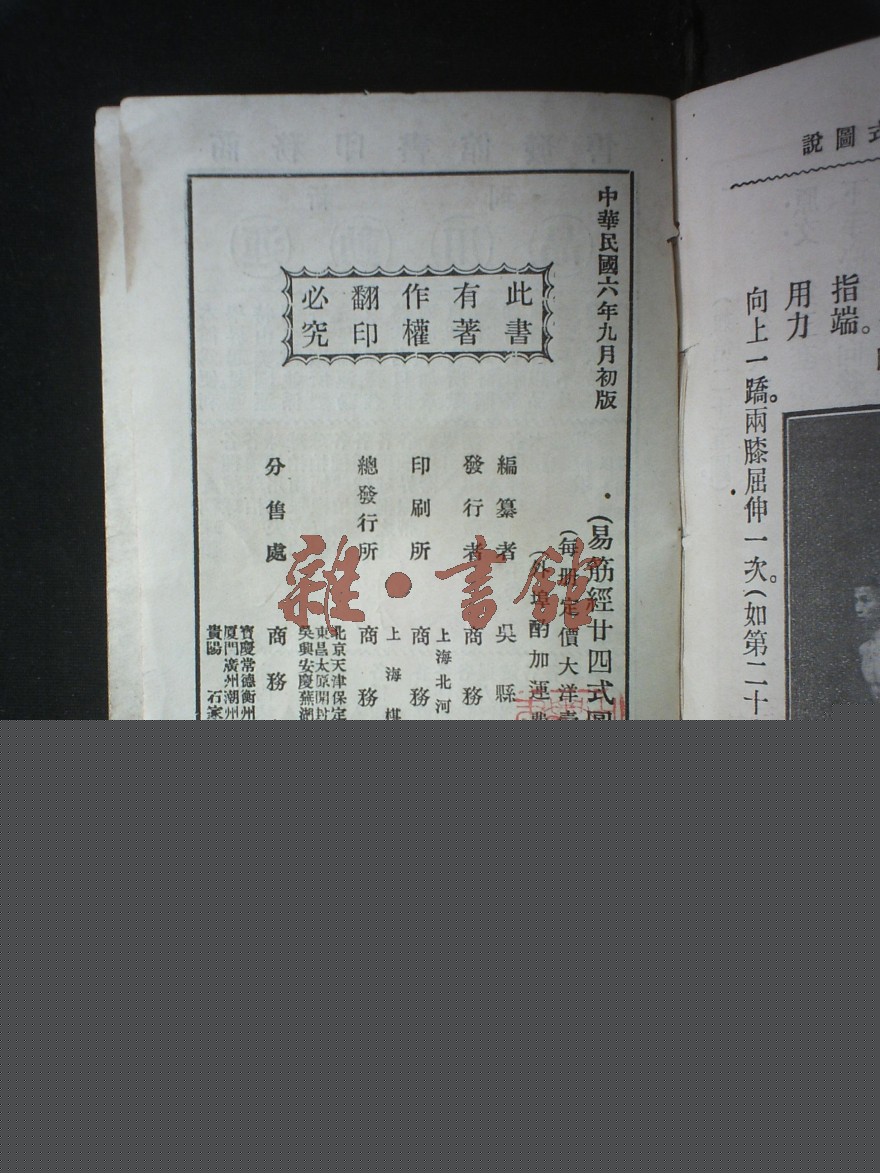 式圖說
指端。
用力
向上一蹻。兩膝屈伸一次。(如第二十
中華民國六年九月初版
此書有著作權翻印必究
(易筋經廿四式圖
(每册定價大洋壹
(外埠酌加運費
編纂者 吳縣
發行者 商務
上海北河
印刷所 商務
上海棋
總發行所 商務
分售處 商務
北京天津保定
東昌太原開封
吳興安慶蕪湖
寶慶常德衡州
厦門廣州潮州
貴陽 石家
雜·書館